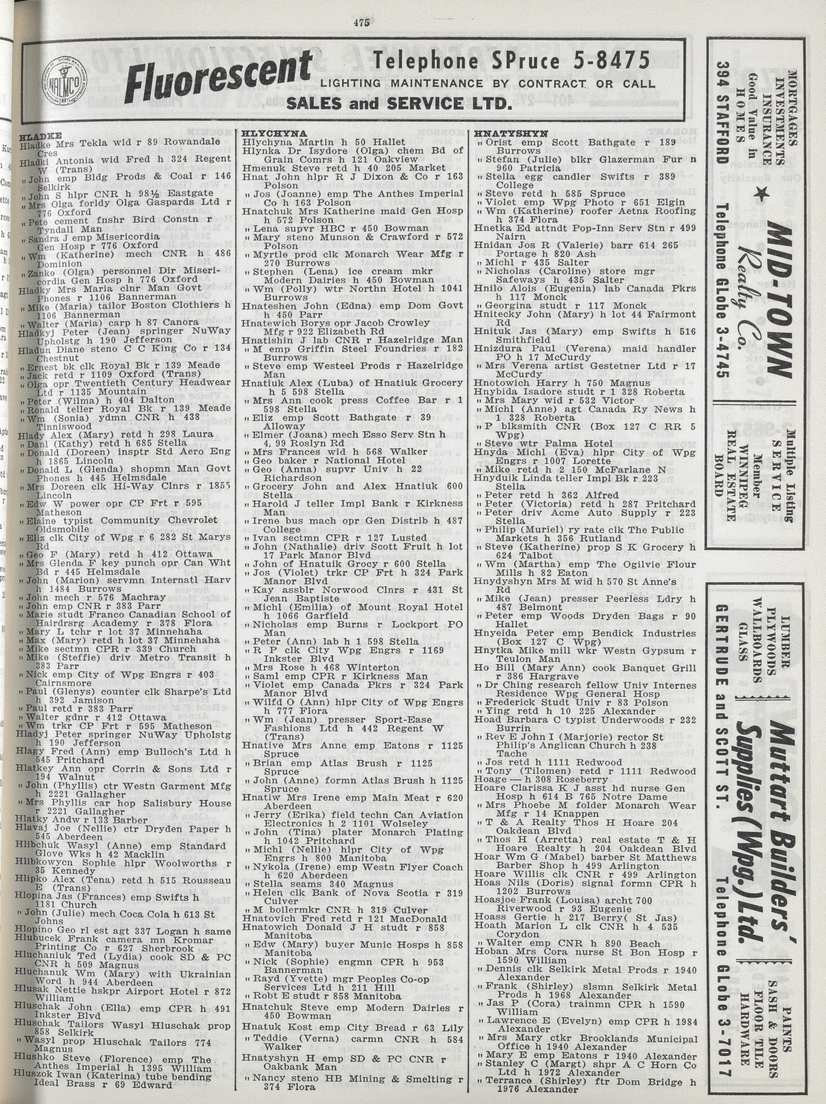 475
NALMCO
Fluorescent
Telephone SPruce 5-8475
LIGHTING MAINTENANCE BY CONTRACT OR CALL
SALES and SERVICE LTD.
HLADKE
Hladke Mrs Tekla wid r 89 Rowandale
Cres
Hladki Antonia wid Fred h 324 Regent
W (Trans)
" John emp Bldg Prods & Coal r 146
Selkirk
" John S hlpr CNR h 98½ Eastgate
" Mrs Olga forldy Olga Gaspards Ltd r
776 Oxford
" Pete cement fnshr Bird Constn r
Tyndall Man
" Sandra J emp Misericordia
Gen Hosp r 776 Oxford
" Wm (Katherine) mech CNR h 486
Dominion
" Zanko (Olga) personnel Dir Miseri-
cordia Gen Hosp h 776 Oxford
Hladky Mrs Maria clnr Man Govt
Phones r 1106 Bannerman
" Mike (Maria) tailor Boston Clothiers h
1106 Bannerman
" Walter (Maria) carp h 87 Canora
Hladkyj Peter (Jean) springer NuWay
Upholstg h 190 Jefferson
Hladun Diane steno C C King Co r 134
Chestnut
" Ernest bk clk Royal Bk r 139 Meade
" Jack retd r 1109 Oxford (Trans)
" Olga opr Twentieth Century Headwear
Ltd r 1135 Mountain
" Peter (Wilma) h 404 Dalton
" Ronald teller Royal Bk r 139 Meade
" Wm (Sonia) ydmn CNR h 438
Tinniswood
Hlady Alex (Mary) retd h 298 Laura
" Danl (Kathy) retd h 685 Stella
" Donald (Doreen) insptr Std Aero Eng
h 1865 Lincoln
" Donald L (Glenda) shopmn Man Govt
Phones h 445 Helmsdale
" Mrs Doreen clk Hi-Way Clnrs r 1855
Lincoln
" Edw W power opr CP Frt r 595
Matheson
" Elaine typist Community Chevrolet
Oldsmobile
" Eliz clk City of Wpg r 6 282 St Marys
Rd
" Geo F (Mary) retd h 412 Ottawa
" Mrs Glenda F key punch opr Can Wht
Bd r 445 Helmsdale
" John (Marion) servmn Internatl Harv
h 1484 Burrows
" John mech r 576 Machray
" John emp CNR r 383 Parr
" Marie studt Franco Canadian School of
Hairdrsrg Academy r 378 Flora
" Mary L tchr r lot 37 Minnehaha
" Max (Mary) retd h lot 37 Minnehaha
" Mike sectmn CPR r 339 Church
" Mike (Steffie) driv Metro Transit h
383 Parr
" Nick emp City of Wpg Engrs r 403
Cairnsmore
" Paul (Glenys) counter clk Sharpe's Ltd
h 392 Jamison
" Paul retd r 383 Parr
" Walter gdnr r 412 Ottawa
" Wm trkr CP Frt r 595 Matheson
Hladyj Peter springer NuWay Upholstg
h 190 Jefferson
Hlagy Fred (Ann) emp Bulloch's Ltd h
545 Pritchard
Hlatkey Ann opr Corrin & Sons Ltd r
194 Walnut
" John (Phyllis) ctr Westn Garment Mfg
h 2221 Gallagher
" Mrs Phyllis car hop Salisbury House
r 2221 Gallagher
Hlatky Andw r 133 Barber
Hlavaj Joe (Nellie) ctr Dryden Paper h
545 Aberdeen
Hlibchuk Wasyl (Anne) emp Standard
Glove Wks h 42 Macklin
Hlibkowycn Sophie hlpr Woolworths r
35 Kennedy
Hlipko Alex (Tena) retd h 515 Rousseau
E (Trans)
Hlopina Jas (Frances) emp Swifts h
1181 Church
" John (Julie) mech Coca Cola h 613 St
Johns
Hlopino Geo rl est agt 337 Logan h same
Hlubucek Frank camera mn Kromar
Printing Co r 627 Sherbrook
Hluchaniuk Ted (Lydia) cook SD & PC
CNR h 509 Magnus
Hluchanuk Wm (Mary) with Ukrainian
Word h 944 Aberdeen
Hlusak Nettie hskpr Airport Hotel r 872
William
Hluschak John (Ella) emp CPR h 491
Inkster Blvd
Hluschak Tailors Wasyl Hluschak prop
858 Selkirk
" Wasyl prop Hluschak Tailors 774
Magnus
Hlushko Steve (Florence) emp The
Anthes Imperial h 1395 William
Hluszok Iwan (Katerina) tube bending
Ideal Brass r 69 Edward
HLYCHYNA
Hlychyna Martin h 50 Hallet
Hlynka Dr Isydore (Olga) chem Bd of
Grain Comrs h 121 Oakview
Hmenuk Steve retd h 40 205 Market
Hnat John hlpr R J Dixon & Co r 163
Polson
" Jos (Joanne) emp The Anthes Imperial
Co h 163 Polson
Hnatchuk Mrs Katherine maid Gen Hosp
h 572 Polson
" Lena supvr HBC r 450 Bowman
" Mary steno Munson & Crawford r 572
Polson
" Myrtle prod clk Monarch Wear Mfg r
270 Burrows
" Stephen (Lena) ice cream mkr
Modern Dairies h 450 Bowman
" Wm (Polly) wtr Northn Hotel h 1041
Burrows
Hnateshen John (Edna) emp Dom Govt
h 450 Parr
Hnatewich Borys opr Jacob Crowley
Mfg r 922 Elizabeth Rd
Hnatishin J lab CNR r Hazelridge Man
" M emp Griffin Steel Foundries r 182
Burrows
" Steve emp Westeel Prods r Hazelridge
Man
Hnatiuk Alex (Luba) of Hnatiuk Grocery
h 5 598 Stella
" Mrs Ann cook press Coffee Bar r 1
598 Stella
" Eliz emp Scott Bathgate r 39
Alloway
" Elmer (Joana) mech Esso Serv Stn h
4, 99 Roslyn Rd
" Mrs Frances wid h 568 Walker
" Geo baker r National Hotel
" Geo (Anna) supvr Univ h 22
Richardson
" Grocery John and Alex Hnatiuk 600
Stella
" Harold J teller Impl Bank r Kirkness
Man
" Irene bus mach opr Gen Distrib h 487
College
" Ivan sectmn CPR r 127 Lusted
" John (Nathalie) driv Scott Fruit h lot
17 Park Manor Blvd
" John of Hnatuik Grocy r 600 Stella
" Jos (Violet) trkr CP Frt h 324 Park
Manor Blvd
" Kay assblr Norwood Clnrs r 431 St
Jean Baptiste
" Michl (Emilia) of Mount Royal Hotel
h 1066 Garfield
" Nicholas emp Burns r Lockport PO
Man
" Peter (Ann) lab h 1 598 Stella
" R P clk City of Wpg Engrs r 1169
Inkster Blvd
" Mrs Rose h 468 Winterton
" Saml emp CPR r Kirkness Man
" Violet emp Canada Pkrs r 324 Park
Manor Blvd
" Wilfd O (Ann) hlpr City of Wpg Engrs
h 777 Flora
" Wm (Jean) presser Sport-Ease
Fashions Ltd h 442 Regent W
(Trans)
Hnative Mrs Anne emp Eatons r 1125
Spruce
" Brian emp Atlas Brush r 1125
Spruce
" John (Anne) formn Atlas Brush h 1125
Spruce
Hnatiw Mrs Irene emp Main Meat r 620
Aberdeen
" Jerry (Erika) field techn Can Aviation
Electronics h 2 1101 Wolseley
" John (Tina) plater Monarch Plating
h 1042 Pritchard
" Michl (Nellie) hlpr City of Wpg
Engrs h 800 Manitoba
" Nykola (Irene) emp Westn Flyer Coach
h 620 Aberdeen
" Stella seams 340 Magnus
" Helen clk Bank of Nova Scotia r 319
Culver
" M boilermkr CNR h 319 Culver
Hnatovich Fred retd r 121 MacDonald
Hnatowich Donald J H studt r 858
Manitoba
" Edw (Mary) buyer Munic Hosps h 858
Manitoba
" Nick (Sophie) engmn CPR h 953
Bannerman
" Rayd (Yvette) mgr Peoples Co-op
Services Ltd h 211 Hill
" Robt E studt r 858 Manitoba
Hnatchuk Steve emp Modern Dairies r
450 Bowman
Hnatuk Kost emp City Bread r 63 Lily
" Teddie (Verna) carmn CNR h 584
Walker
Hnatyshyn H emp SD & PC CNR r
Oakbank Man
" Nancy steno HB Mining & Smelting r
374 Flora
HNATYSHYN
" Orist emp Scott Bathgate r 189
Burrows
" Stefan (Julie) blkr Glazerman Fur n
960 Patricia
" Stella egg candler Swifts r 389
College
" Steve retd h 585 Spruce
" Violet emp Wpg Photo r 651 Elgin
" Wm (Katherine) roofer Aetna Roofing
h 374 Flora
Hnetka Ed attndt Pop-Inn Serv Stn r 499
Nairn
Hnidan Jos R (Valerie) barr 614 265
Portage h 820 Ash
" Michl r 435 Salter
" Nicholas (Caroline) store mgr
Safeways h 435 Salter
Hnilo Alois (Eugenia) lab Canada Pkrs
h 117 Monck
" Georgina studt r 117 Monck
Hnitecky John (Mary) h lot 44 Fairmont
Rd
Hnituk Jas (Mary) emp Swifts h 516
Smithfield
Hnizdura Paul (Verena) maid handler
PO h 17 McCurdy
" Mrs Verena artist Gestetner Ltd r 17
McCurdy
Hnotowich Harry h 750 Magnus
Hnybida Isadore studt r 1 328 Roberta
" Mrs Mary wid r 532 Victor
" Michl (Anne) agt Canada Ry News h
1 328 Roberta
" P blksmith CNR (Box 127 C RR 5
Wpg)
" Steve wtr Palma Hotel
Hnyda Michl (Eva) hlpr City of Wpg
Engrs r 1007 Lorette
" Mike retd h 2 150 McFarlane N
Hnyduik Linda teller Impl Bk r 223
Stella
" Peter retd h 362 Alfred
" Peter (Victoria) retd h 287 Pritchard
" Peter driv Acme Auto Supply r 223
Stella
" Philip (Muriel) ry rate clk The Public
Markets h 356 Rutland
" Steve (Katherine) prop S K Grocery h
624 Talbot
" Wm (Martha) emp The Ogilvie Flour
Mills h 82 Eaton
Hnydyshyn Mrs M wid h 570 St Anne's
Rd
" Mike (Jean) presser Peerless Ldry h
487 Belmont
" Peter emp Woods Dryden Bags r 90
Hallet
Hnyeida Peter emp Bendick Industries
(Box 127 C Wpg)
Hnytka Mike mill wkr Westn Gypsum r
Teulon Man
Ho Bill (Mary Ann) cook Banquet Grill
r 386 Hargrave
" Dr Ching research fellow Univ Internes
Residence Wpg General Hosp
" Frederick Studt Univ r 83 Polson
" Ying retd h 10 225 Alexander
Hoad Barbara C typist Underwoods r 232
Burrin
" Rev E John I (Marjorie) rector St
Philip's Anglican Church h 238
Tache
" Jos retd h 1111 Redwood
" Tony (Tilomen) retd r 1111 Redwood
Hoage — h 308 Roseberry
Hoare Clarissa K J asst hd nurse Gen
Hosp h 614 B 765 Notre Dame
" Mrs Phoebe M folder Monarch Wear
Mfg r 14 Knappen
" T & A Realty Thos H Hoare 204
Oakdean Blvd
" Thos H (Arretta) real estate T & H
Hoare Realty h 204 Oakdean Blvd
Hoar Wm G (Mabel) barber St Matthews
Barber Shop h 499 Arlington
Hoare Willis clk CNR r 499 Arlington
Hoas Nils (Doris) signal formn CPR h
1202 Burrows
Hoasjoe Frank (Louisa) archt 700
Riverwood r 93 Eugenie
Hoass Gertie h 217 Berry( St Jas)
Hoath Marion L clk CNR h 4 535
Corydon
" Walter emp CNR h 890 Beach
Hoban Mrs Cora nurse St Bon Hosp r
1590 William
" Dennis clk Selkirk Metal Prods r 1940
Alexander
" Frank (Shirley) slsmn Selkirk Metal
Prods h 1968 Alexander
" Jas P (Cora) trainmn CPR h 1590
William
" Lawrence E (Evelyn) emp CPR h 1984
Alexander
" Mrs Mary ctkr Brooklands Municipal
Office h 1940 Alexander
" Mary E emp Eatons r 1940 Alexander
" Stanley C (Margt) shpr A C Horn Co
Ltd h 1972 Alexander
" Terrance (Shirley) ftr Dom Bridge h
1976 Alexander
MORTGAGES
INVESTMENTS
INSURANCE
Good Value in
HOMES
394 STAFFORD
★ MID-TOWN
Realty Co.
Telephone GLobe 3-4745
Multiple Listing
SERVICE
Member
WINNIPEG
REAL ESTATE
BOARD
LUMBER
PLYWOODS
WALLBOARDS
GLASS
GERTRUDE and SCOTT ST.
Muttart Builders'
Supplies (Wpg.) Ltd.
Telephone GLobe 3-7017
PAINTS
SASH & DOORS
FLOOR TILE
HARDWARE